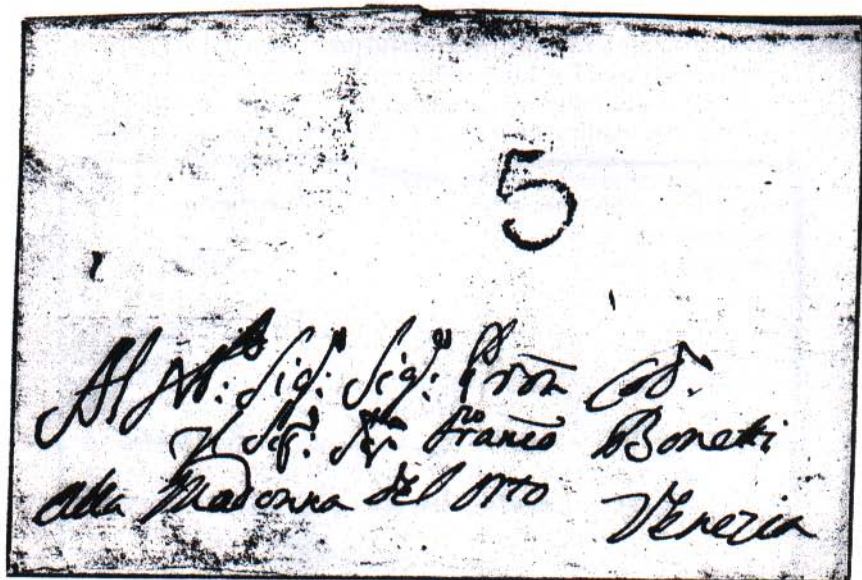 5
Al Sig: Sig:
Il Sig: Sig: Franco Bonetti
alla Madonna del Orto Venezia